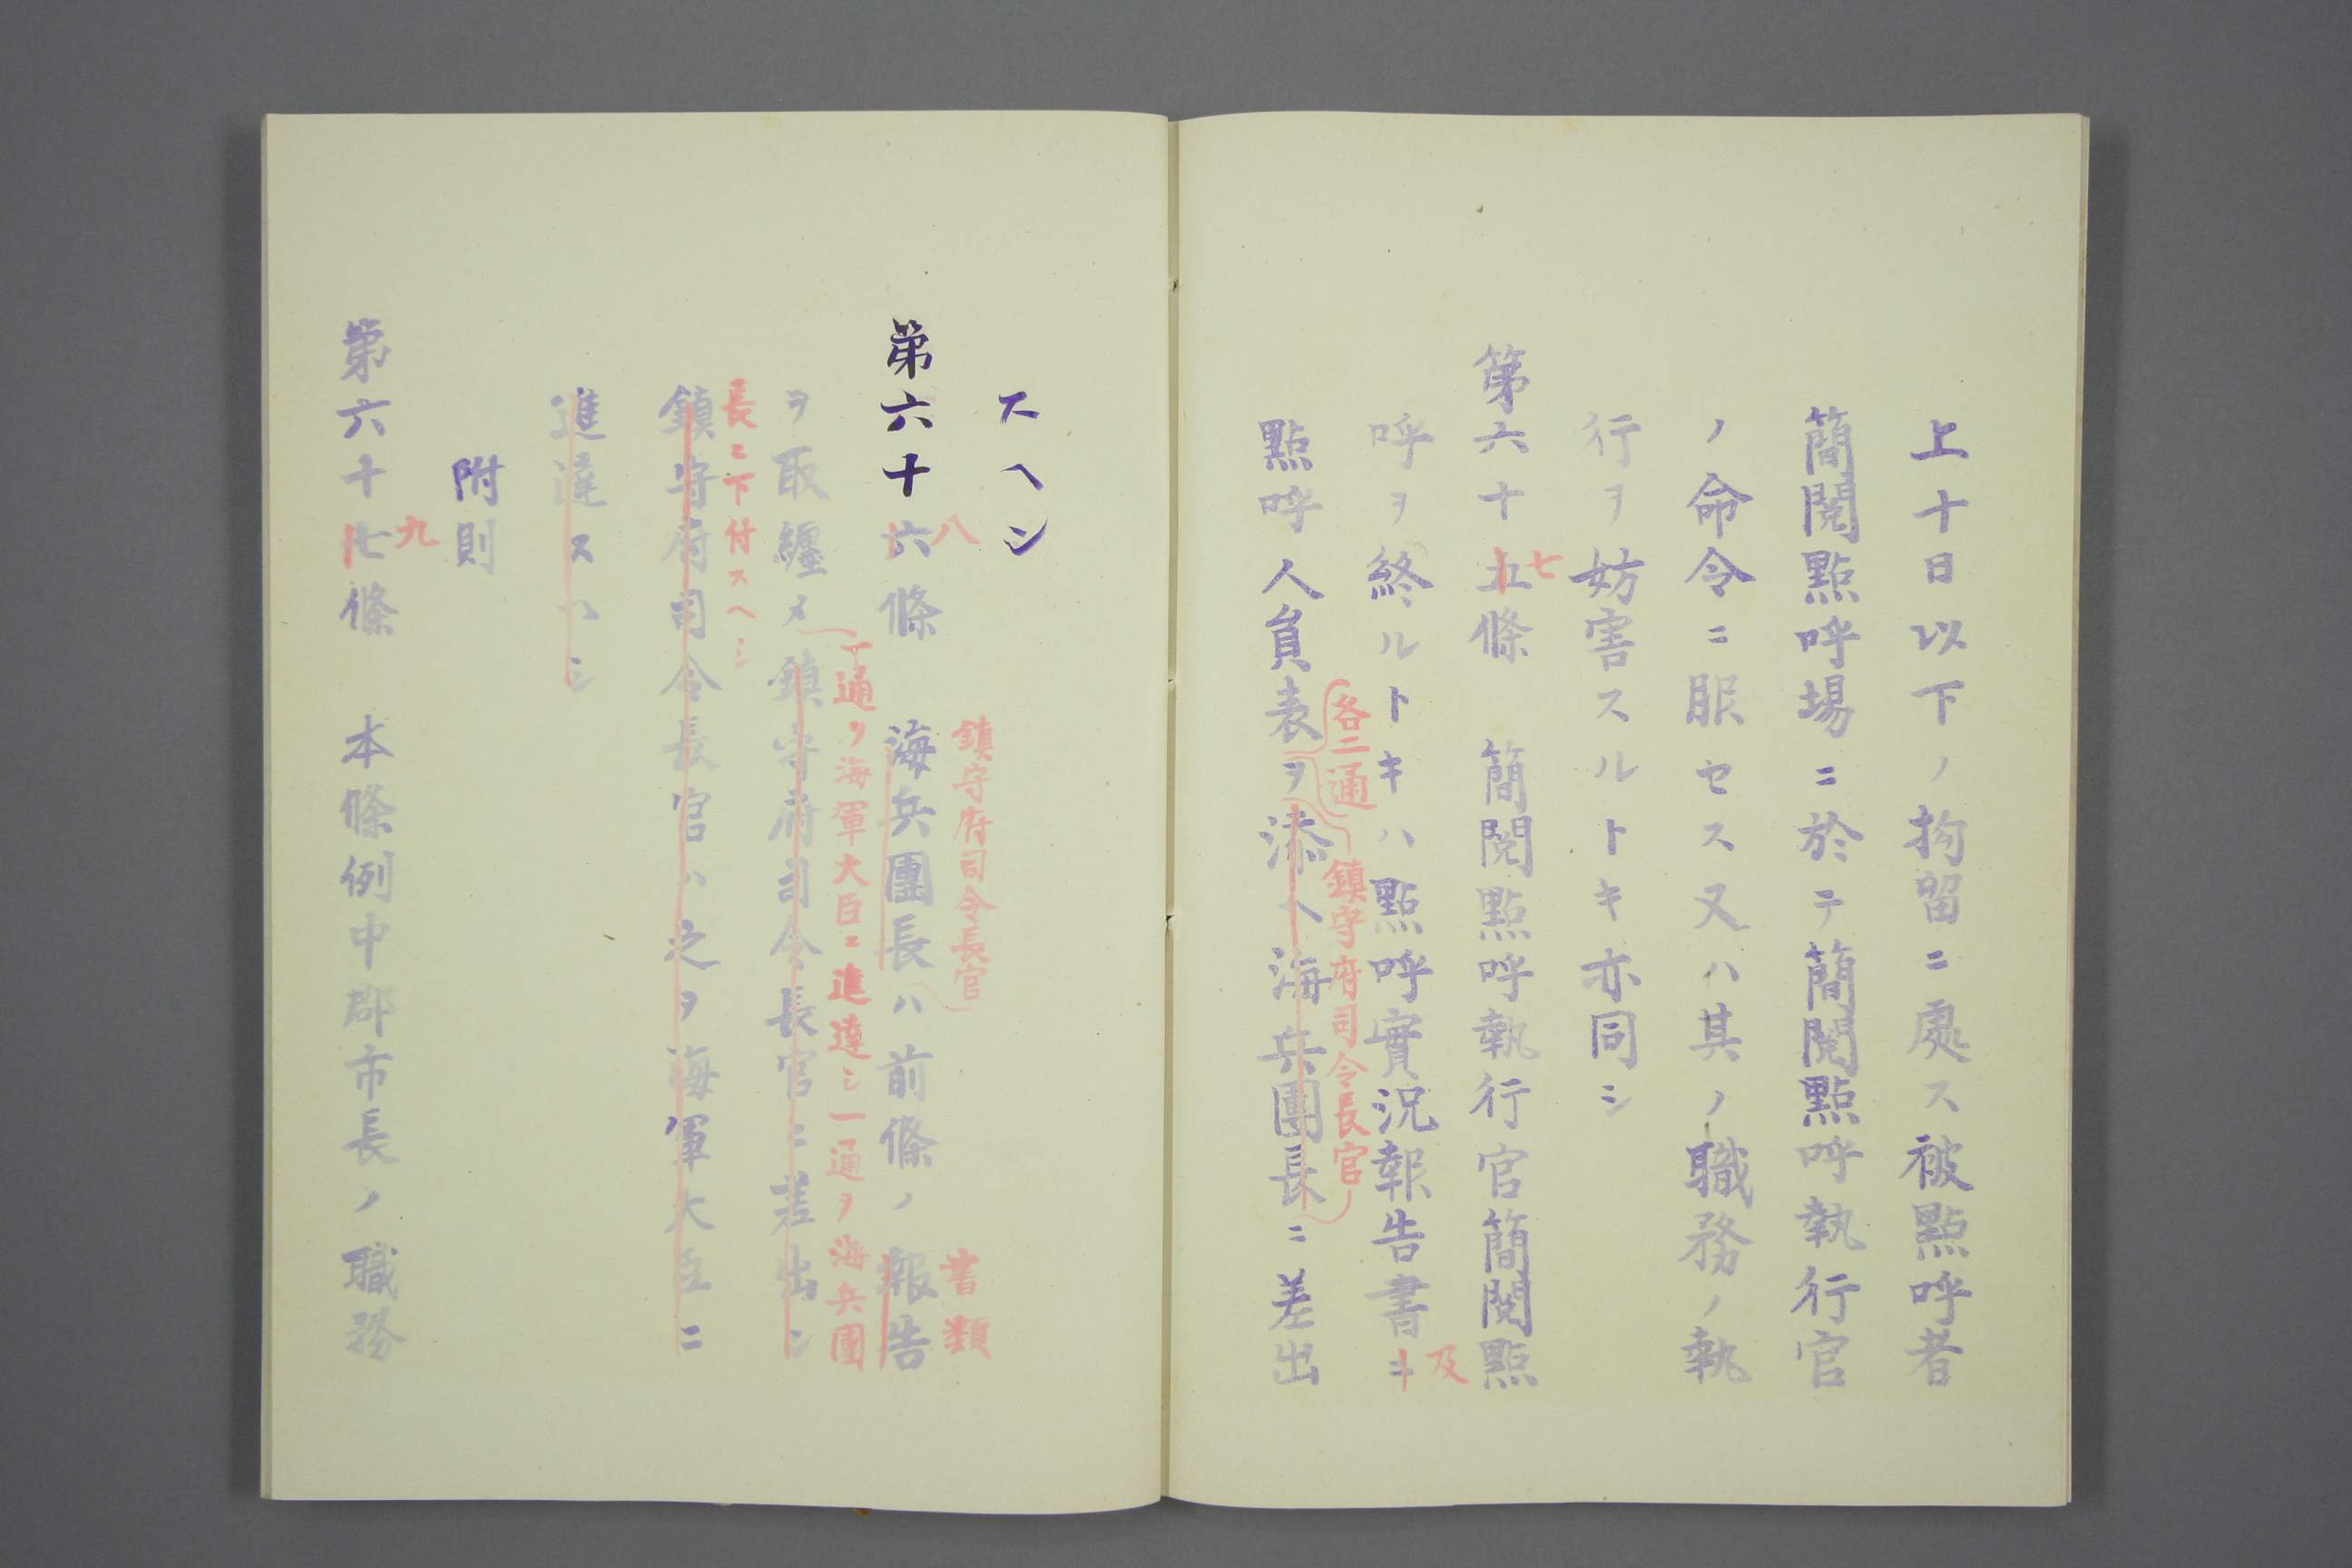 上十日以下ノ拘留ニ處ス被點呼者
簡閱點呼場ニ於テ簡閱點呼執行官
ノ命令ニ服セス又ハ其ノ職務ノ執
行ヲ妨害スルトキ亦同シ
七
第六十五條 簡閱點呼執行官簡閱點
及
呼ヲ終ルトキハ點呼實況報告書ニ
各二通
鎮守府司令長官
點呼人員表ヲ添ヘ海兵團長ニ差出
スヘシ
八 鎮守府司令長官 書類
第六十六條 海兵團長ハ前條ノ報告
一通ヲ海軍大臣ニ進達シ一通ヲ海兵團
ヲ取纏メ鎮守府司令長官ニ差出シ
長ニ下付スヘシ
鎮守府司令長官ハ之ヲ海軍大臣ニ
進達スヘシ
附則
九
第六十七條 本條例中郡市長ノ職務